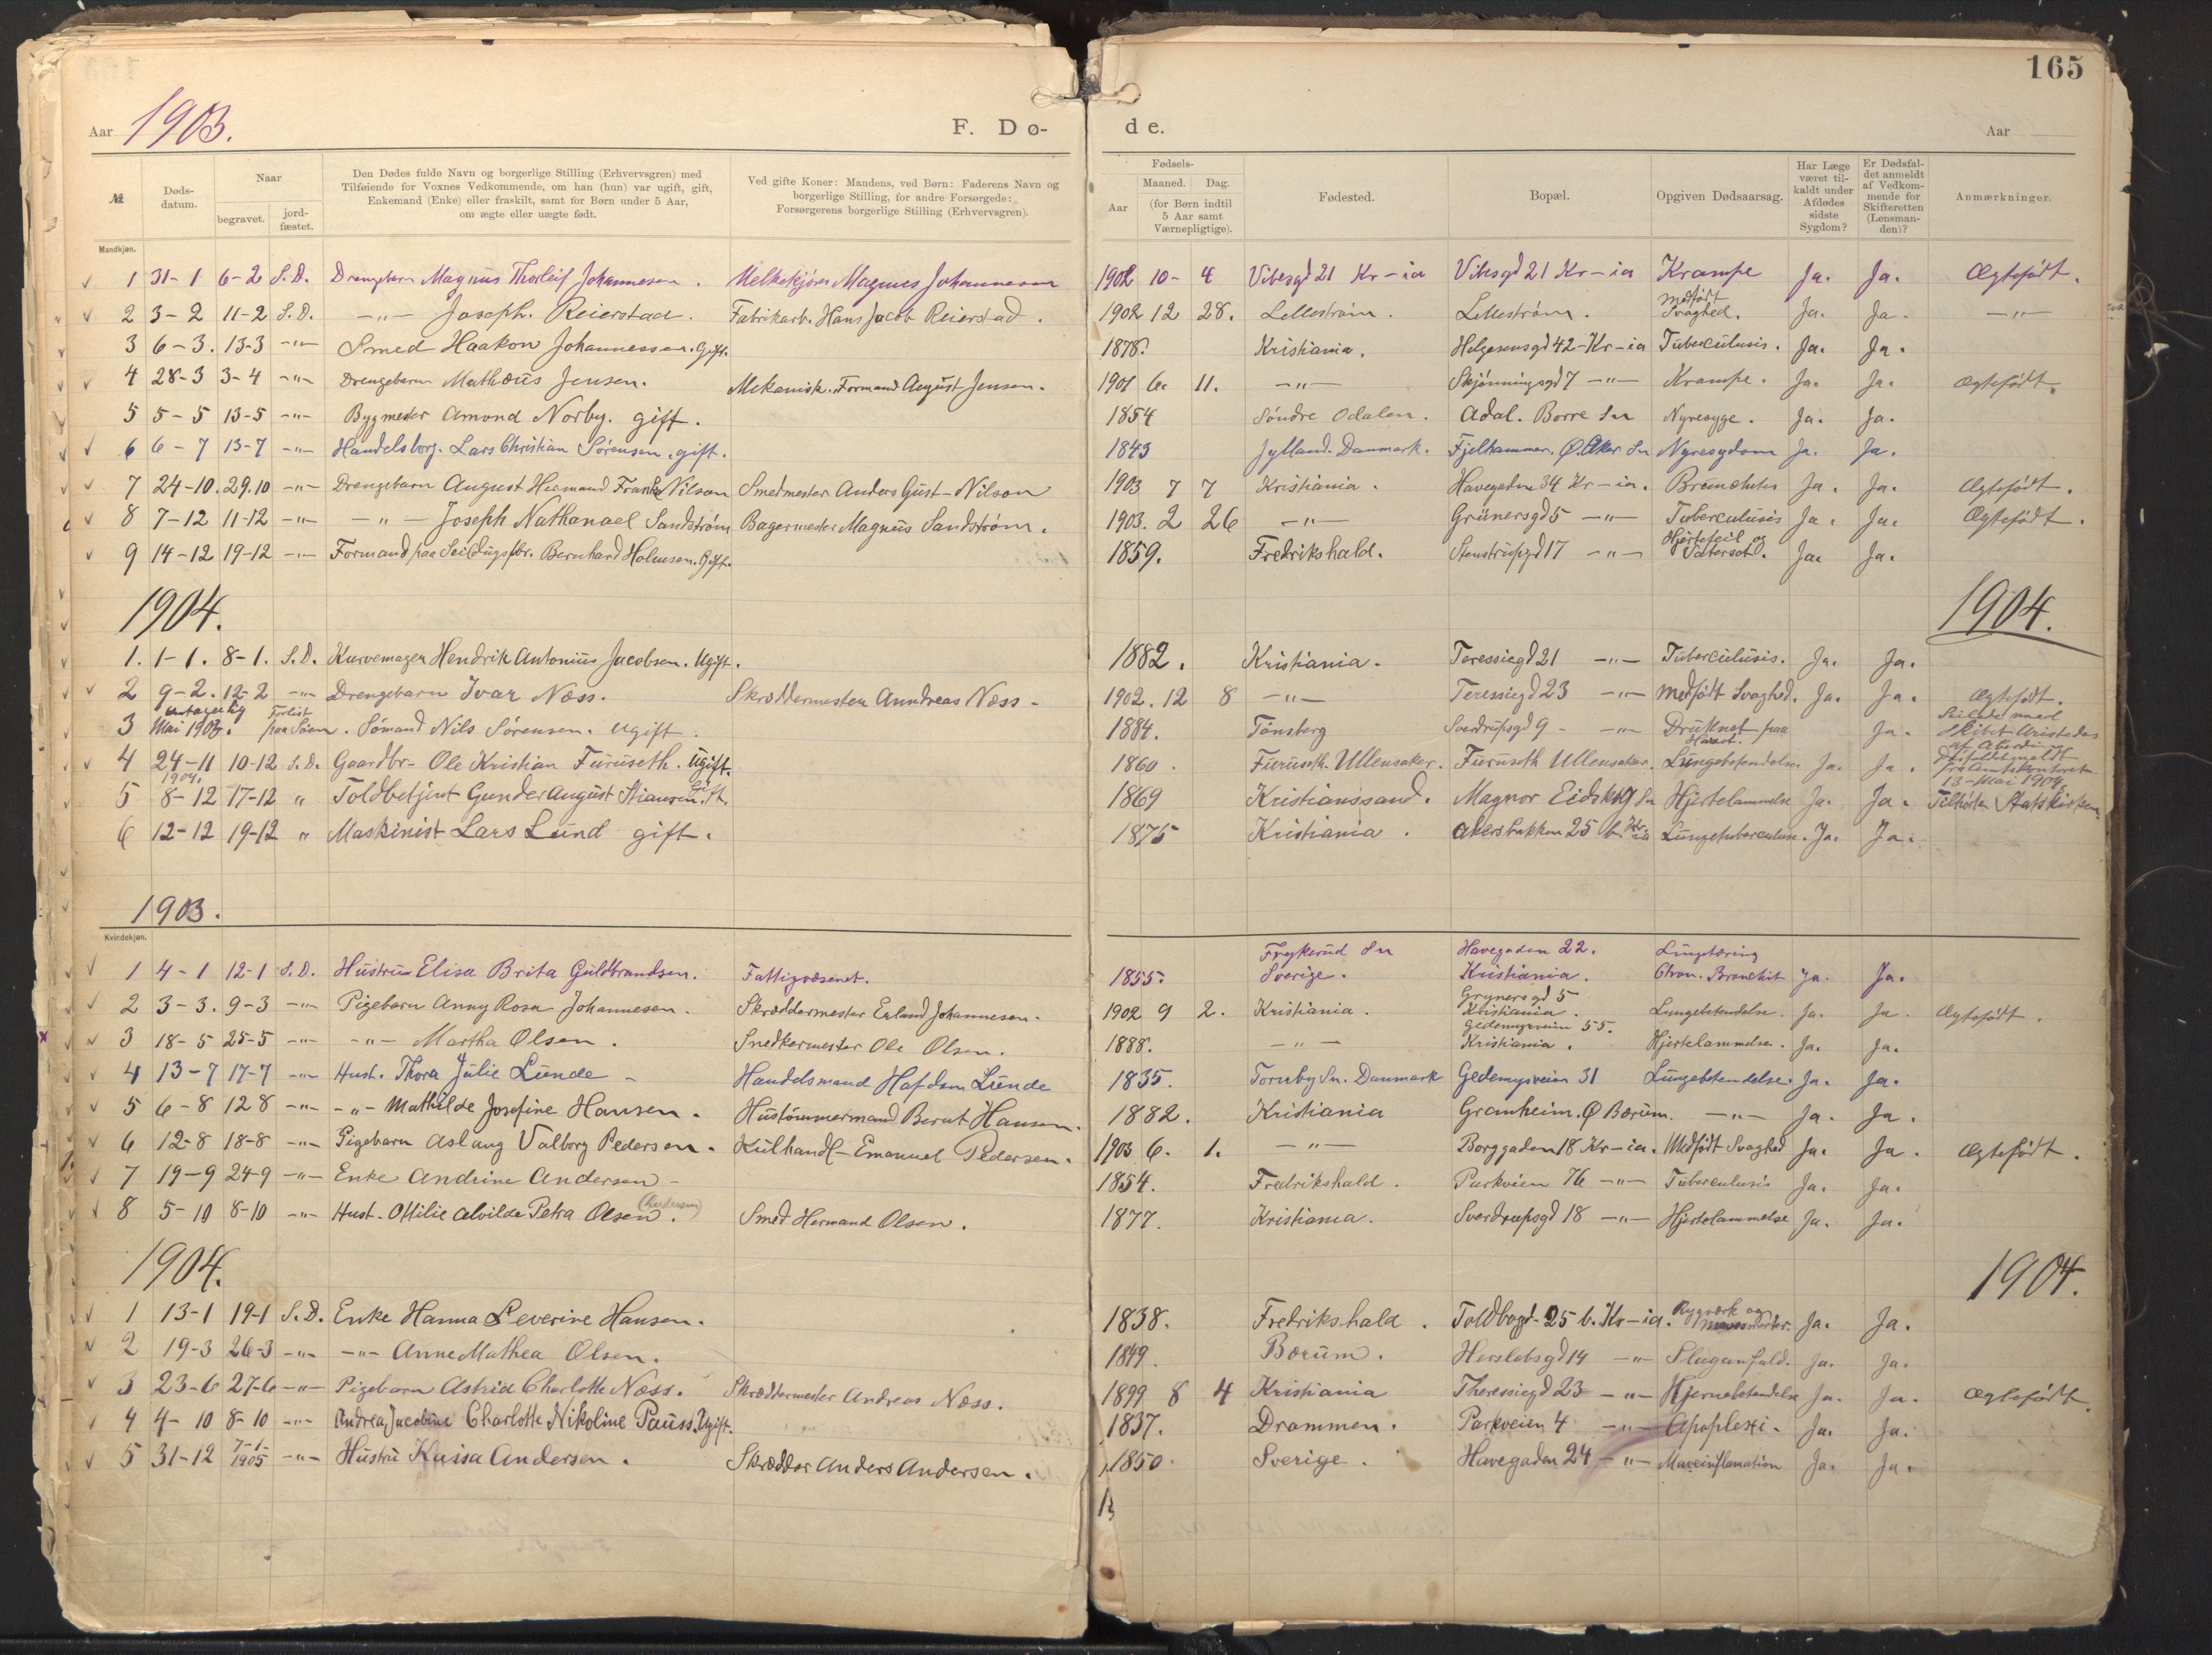 165
Aar 1903. F. Dø- de. Aar
№ Døds-datum. Naar begravet. jord-fæstet. Den Dødes fulde Navn og borgerlige Stilling (Erhvervsgren) med Tilføiende for Voxnes Vedkommende, om han (hun) var ugift, gift, Enkemand (Enke) eller fraskilt, samt for Børn under 5 Aar, om ægte eller uægte født. Ved gifte Koner: Mandens, ved Børn: Faderens Navn og borgerlige Stilling, for andre Forsørgede: Forsørgerens borgerlige Stilling (Erhvervsgren). Fødsels- Aar Maaned. Dag. (for Børn indtil 5 Aar samt Værnepligtige). Fødested. Bopæl. Opgiven Dødsaarsag. Har Læge været til-kaldt under Afdødes sidste Sygdom? Er Dødsfal-det anmeldt af Vedkom-mende for Skifteretten (Lensman-den)? Anmærkninger.
Mandkjøn.
1 31-1 6-2 S.D. Drengebarn Magnus Thorleif Johannesen. Melkekjører Magnus Johannesen 1902 10- 4 Vibesgd 21 Kr-ia Vibesgd 21 Kr-ia Krampe Ja. Ja. Ægtefødt.
2 3-2 11-2 S.D. -"- Joseph. Reierstad. Fabrikarb. Hans Jacob Reierstad. 1902 12 28. Lellestrøm. Lellestrøm. Medfødt Svaghed. Ja. Ja. -"-
3 6-3. 13-3 -"- Smed Haakon Johannessen. Gift. 1878. Kristiania. Helgesensgd 42-Kr-ia Tuberculusis. Ja. Ja.
4 28-3 3-4 -"- Drengebarn Mathæus Jensen. Mekanisk. Formand August Jensen. 1901 6. 11. -"- Skjønningsgd 7 -"- Krampe. Ja. Ja. Ægtefødt.
5 5-5 13-5 -"- Bygmester Amond Norby. gift. 1854 Søndre Odalen. Adal. Borre Sn Nyresyge. Ja. Ja.
6 6-7 13-7 -"- Handelsborg. Lars Christian Sørensen. gift. 1843 Jylland. Danmark. Fjelhammer. Ø. Aker Sn Nyresygdom Ja. Ja.
7 24-10. 29.10 -"- Drengebarn August Hermand Frank Nilson Smedmester Anders Gust-Nilson 1903 7 7 Kristiania. Havegaden 34 Kr-ia. Ja. Ja. Ægtefødt.
8 7-12 11-12 -"- -"- Joseph Nathanael Sandstrøm Bagermester Magnus Sandstrøm. 1903. 2 26 -"- Grünersgd 5 -"- Tuberculusis Ja. Ja. Ægtefødt.
9 14-12 19-12 -"- Formand paa Seildugsfbr. Bernhard Holmsen. Gift. 1859. Fredrikshald. Stenstrupgd 17 -"- Hjertefeil og Vatersot. Ja. Ja.
1904. 1904.
1. 1-1. 8-1. S.D. Kurvemager Hendrik Antonius Jacobsen. Ugift. 1882. Kristiania. Teressiegd 21 -"- Tuberculusis. Ja. Ja.
2 9-2. 12-2 -"- Drengebarn Ivar Næss. Skræddermester Anndreas Næss- 1902. 12 8 -"- Teressiegd 23 -"- Medfødt Svaghed. Ja. Ja. Ægtefødt.
3 antagelig Mai 1903. Forlist paa Søen. Sømand Nils Sørensen. ugift. 1884. Tønsberg Sverdrupsgd 9 - -"- Druknet paa Havet. Ja. Seilede med Skibet Aristedes
4 24-11 1904. 10-12 S.D. Gaardbr- Ole Kristian Furuseth. Ugift. 1860. Furuseth. Ullensaker. Furuseth Ullensaker. Lungebetendelse Ja. Ja. Dødsfaldet meldt fra Amtskontoret 13-Mai 1904.
5 8-12 17-12 " Toldbetjent Gunder August Stiansen Gift. 1869 Kristianssand. Magnor Eidskog Sn Hjertelammelse Ja. Ja. Tilhørte Statskirken
6 12-12 19-12 " Maskinist Lars Lund gift. 1875 Kristiania. Akersbakken 25 b. Kr-ia Lungetuberculuse. Ja. Ja.
1903.
Kvindekjøn.
1 4-1 12-1 S.D. Hustru Elisa Brita Guldbrandsen. Fattigvæsenet. 1855. Frykerud Sn Sverige. Havegaden 22. Kristiania. Lungetæring Chron. Bronchit Ja. Ja.
2 3-3. 9-3 -"- Pigebarn Anny Rosa Johannesen. Skræddermester Erland Johannesen. 1902 9 2. Kristiania. Grynersgd 5 Kristiania. Lungebetendelse. Ja. Ja. Ægtefødt.
3 18-5 25-5 -"- -"- Martha Olsen. Snedkermester Ole Olsen. 1888. -"- Gedemyrveien 55. Kristiania. Hjertelammelse. Ja. Ja.
4 13-7 17-7 -"- Hust. Thora Julie Lunde - Handelsmand Hafdan Lunde 1835. Tornby Sn. Danmark Gedemyrveien 31 Lungebetendelse. Ja. Ja.
5 6-8 12 8 -"- -"- Mathilde Josefine Hansen. Hustømmermand Bernt Hansen. 1882. Kristiania Granheim. Ø Bærum. -"- Ja. Ja.
6 12-8 18-8 -"- Pigebarn Aslaug Valborg Pedersen. Kulhandl- Emanuel Pedersen. 1903 6. 1. -"- Borggaden 18 Kr-ia. Medfødt Svaghed Ja. Ja. Ægtefødt.
7 19-9 24-9 -"- Enke Andrine Andersen - 1854. Fredrikshald. Parkveien 76 -"- Tuberculusis Ja. Ja.
8 5-10 8-10 -"- Hust. Ottilie Alvilde Petra Olsen. (Andersen) Smed Hermand Olsen. 1877. Kristiania. Sverdrupsgd 18 -"- Hjertelammelse Ja. Ja.
1904. 1904.
1 13-1 19-1 S.D. Enke Hanna Severine Hansen. 1838. Fredrikshald. Toldbogd-25 b. Kr-ia. Rygværk og Ja. Ja.
2 19-3 26-3 -"- -"- Anne Mathea Olsen. 1849. Bærum. Herslebsgd 14 -"- Slaganfald. Ja. Ja.
3 23-6 27-6 -"- Pigebarn Astrid Charlotte Næss. Skræddermester Andreas Næss. 1899 8 4 Kristiania Theressiegd 23 -"- Hjernebetendelse Ja. Ja. Ægtefødt.
4 4-10 8-10 -"- Andrea Jacobine Charlotte Nikoline Pauss. Ugift. 1837. Drammen. Parkveien 4 -"- Apoplexi. Ja. Ja.
5 31-12 7-1-1905 -"- Hustru Kaisa Andersen. Skrædder Anders Andersen. 1850. Sverige. Havegaden 24 -"- Maveinflamation Ja. Ja.